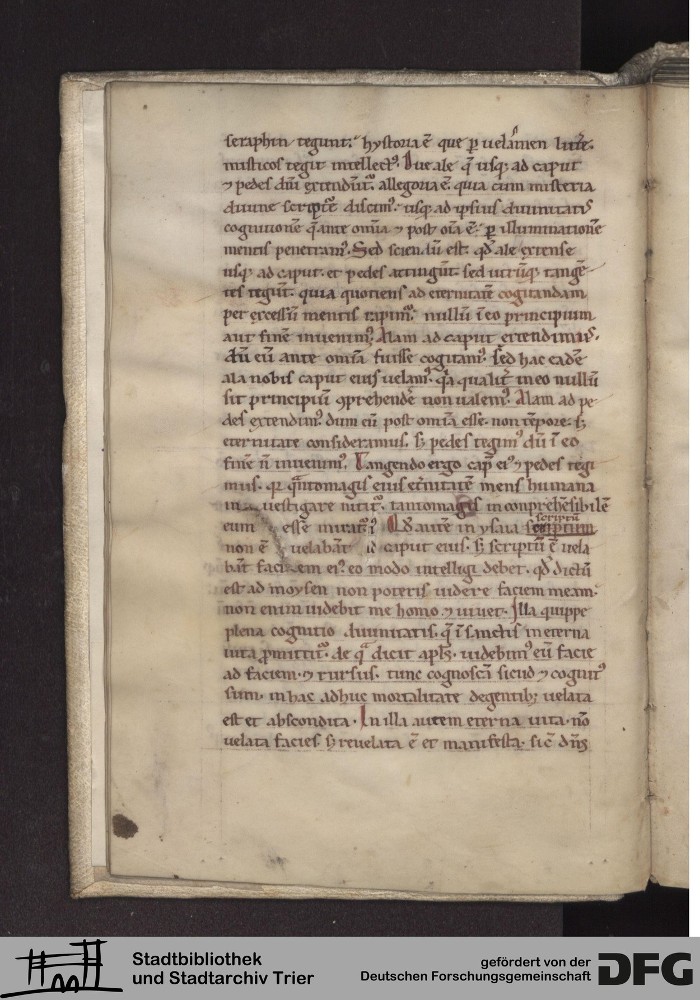 seraphin tegunt. hystoria ē que ꝑ uelamen litt̄e.
misticos tegit intellectꝰ. Due ale q̄ usq; ad caput
⁊ pedes dn̄i extendūt᷑. allegoria ē. quia cum misteria
diuine scripte discimꝰ. usq; ad ipsius diuinitatis
cognitionē q̄ ante omīa ⁊ post oīa ē. ꝑ illuminationē
mentis penetramꝰ. Sed sciendū est. qđ ale extense
usq; ad caput. et pedes attingūt. sed utrūq; tangē
tes tegūt. quia quotiens ad eternitatē cogitandam
per excessū mentis rapimꝰ. nullū ī eo principium
aut finē inuenimꝰ. Alam ad caput extendimus.
dū eū ante omīa fuisse cogitamꝰ. sed hac eadē
ala nobis caput eius uelamꝰ. q̄a qualit̄ in eo nullū
sit principiū ꝯprehendē non ualemꝰ. Alam ad pe
des extendimꝰ. dum eū post omīa esse. non tēpore. sꝫ
eternitate consideramus. sꝫ pedes tegimꝰ dū ī eo
finē n̄ inuenimꝰ. Tangendo ergo cap̄ eiꝰ ⁊ pedes tegi
mus. q̄a quātomagis eius et̄nitatē mens humana
in uestigare nitit᷑. tantomagis incomprehēsibilē
eum esse mirat᷑. Qđ autē in ysaia scriptū
scriptum
non ē uelabāt caput eius. sꝫ scriptū ē uela
bāt faciem eiꝰ. eo modo intelligi debet. qđ dictū
est ad moysen non poteris uidere faciem meam.
non enim uidebit me homo ⁊ uiuet. Illa quippe
plena cognitio diuinitatis. q̄ ī sanctis in eterna
uita ꝓmittit᷑. de qᵃ dicit apls̄. uidebimꝰ eū facie
ad faciem. ⁊ rursus. tunc cognoscā sicud ⁊ cognitꝰ
sum. in hac adhuc mortalitate degentibꝫ uelata
est et abscondita. In illa autem eterna uita. nō
uelata facies. sꝫ reuelata ē et manifesta. sic̄ dn̄s
Stadtbibliothek
und Stadtarchiv Trier
gefördert von der
Deutschen Forschungsgemeinschaft
DFG